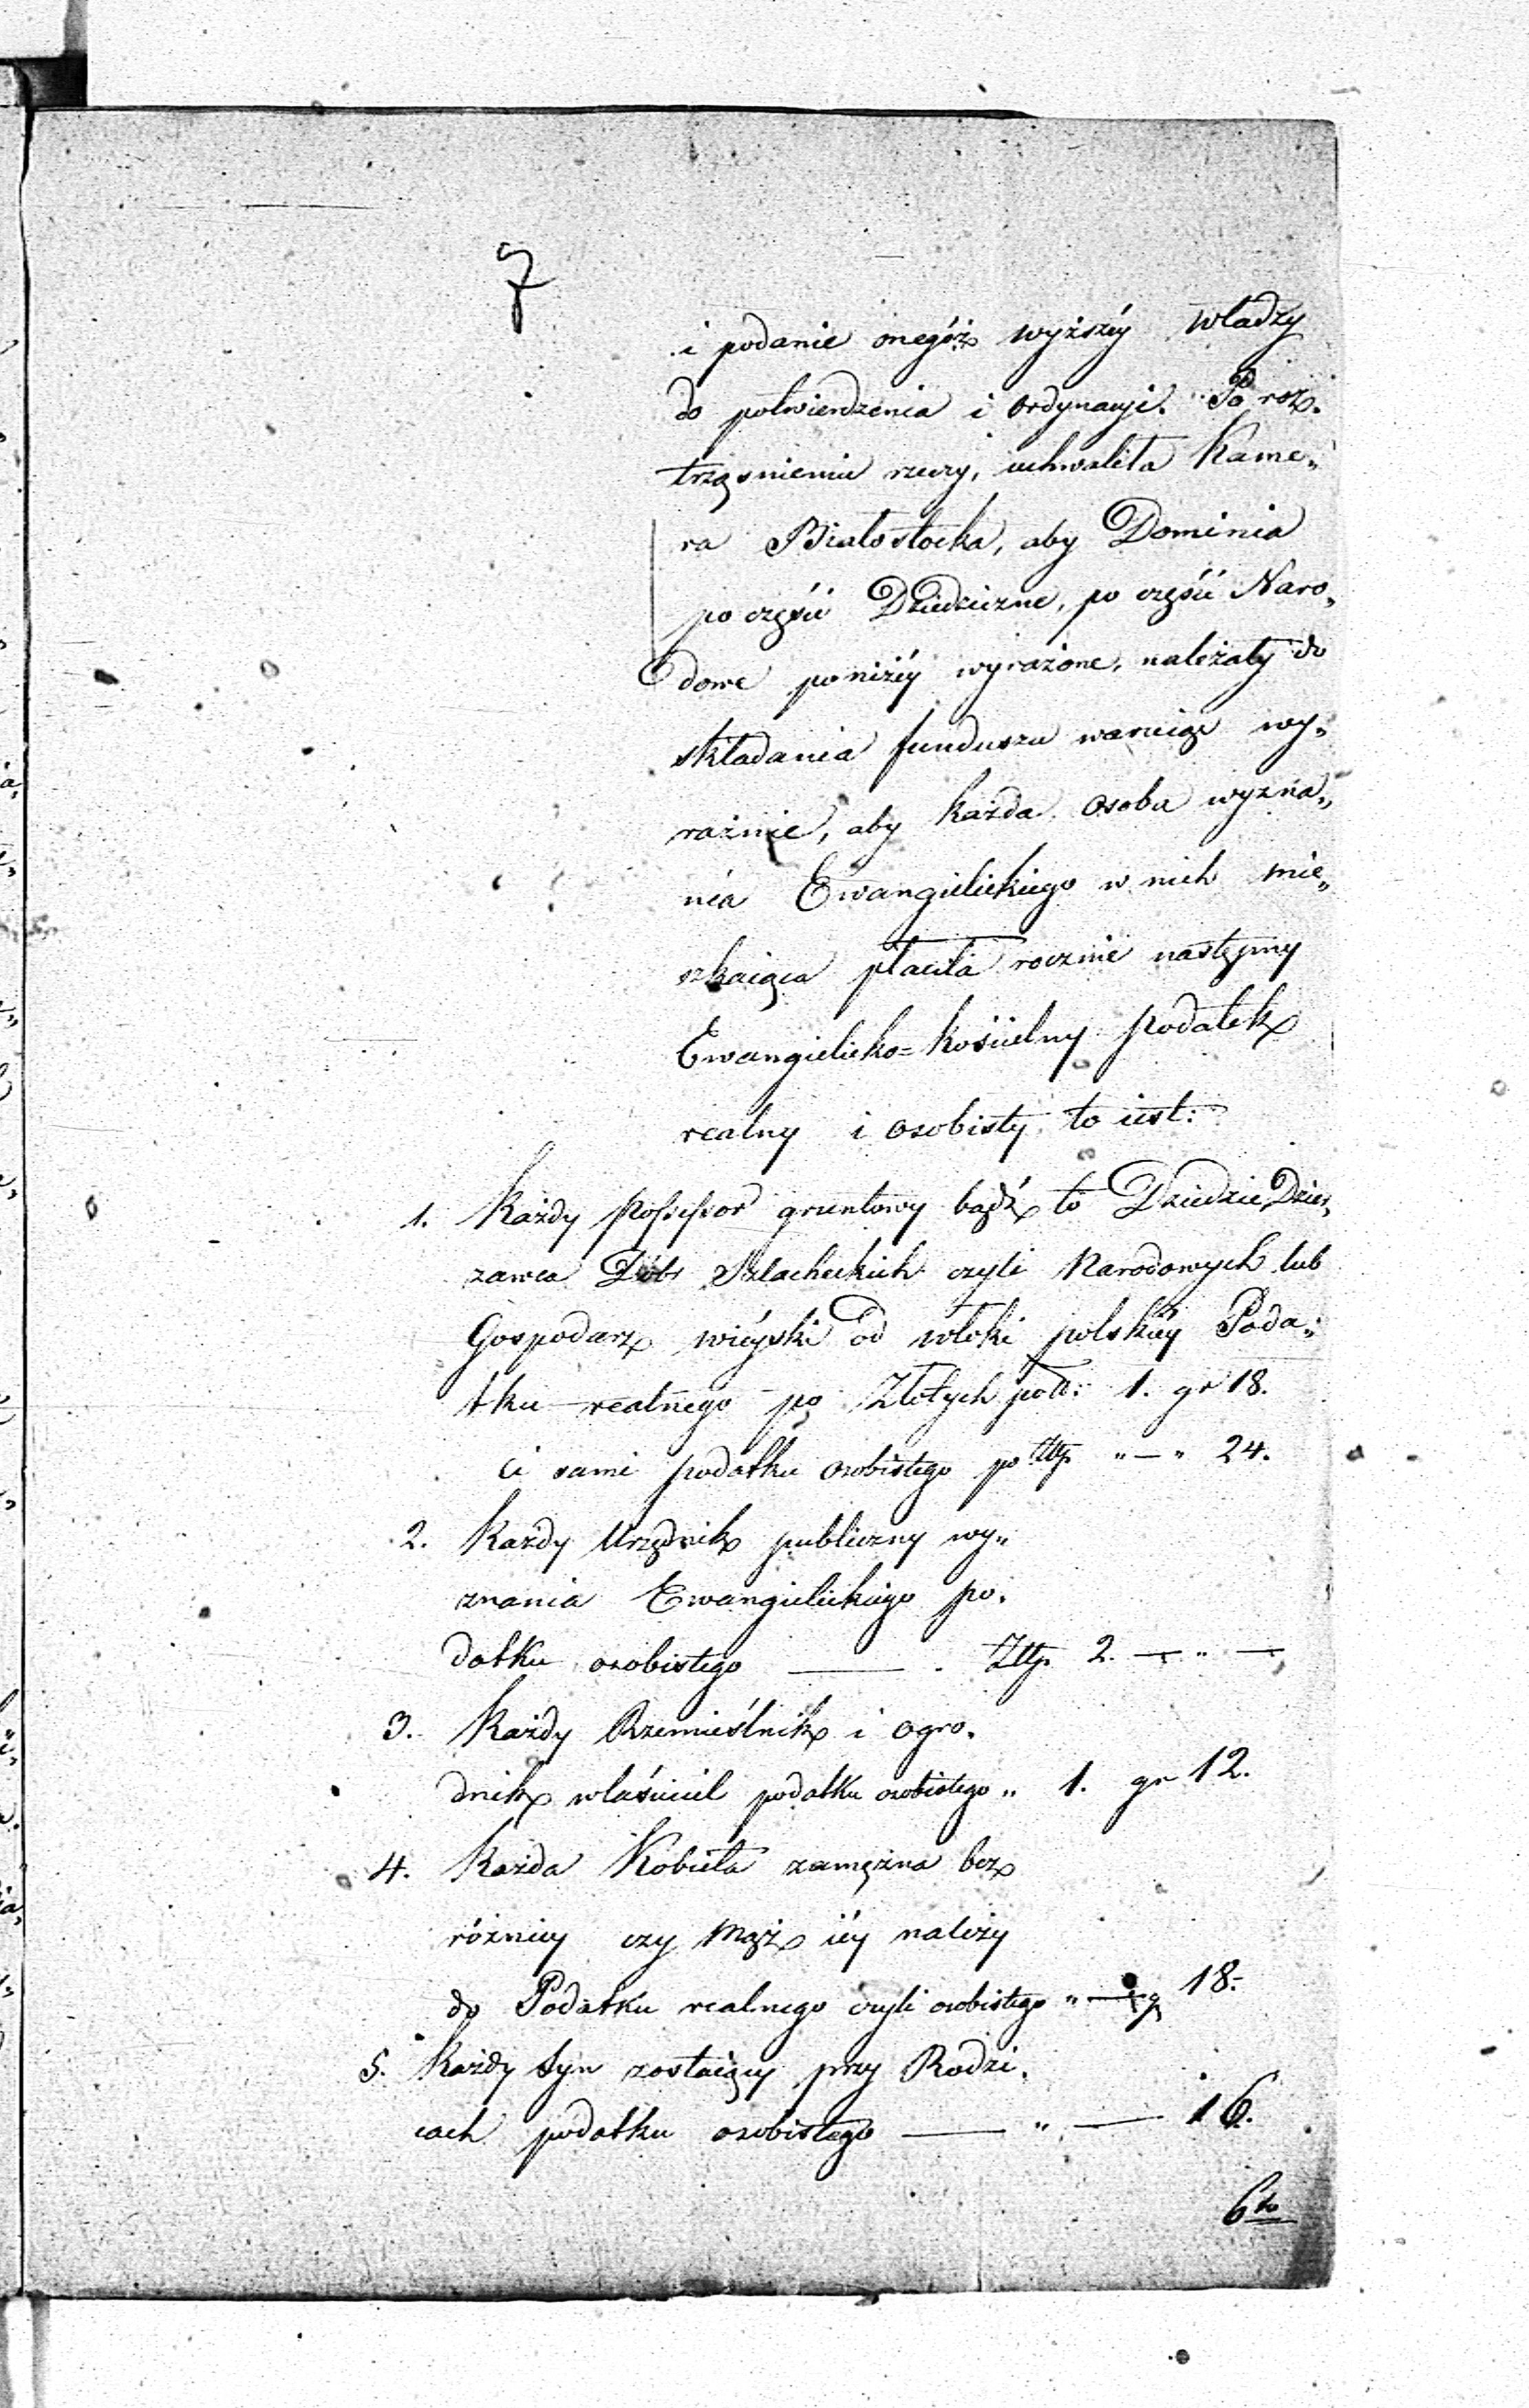 7
i podanie onegóż wyższéy władzy
do potwierdzenia i ordynacyi. Po roz„
trząśnieniu rzeczy, uchwaliła Kame„
ra Białostocka, aby Dominia
po części Dziedziczne, po części Naro„
dowe poniżéy wyrażone, należały do
składania funduszu waruiąc wy„
raźnie, aby każda osoba wyzna„
nia Ewangielickiego w nich mie„
szkaiąca płaciła rocznie następny
Ewangielicko=kościelny podatek
realny i osobisty to iest:
1. Każdy Possessor gruntowy bądź to Dziedzic, Dzier„
zawca Dóbr Szlacheckich czyli Narodowych lub
Gospodarz wiéyski od włoki polskiéy Poda„
tku realnego po Złotych pol: 1. gr 18.
ci sami podatku osobistego po Złtp. „—„ 24.
2. Każdy Urzędnik publiczny wy„
znania Ewangielickiego po„
datku osobistego —— . Złtp. 2. — „ —
3. Każdy Rzemieślnik i ogro„
dnik właściciel podatku osobistego „ 1. gr 12.
4. Każda Kobieta zamężna bez
różnicy czy Mąż iéy należy
do Podatku realnego czyli osobistego „ — g 18.
5. Każdy Syn zostaiący przy Rodzi„
cach podatku osobistego —— „ —— 16.
6to